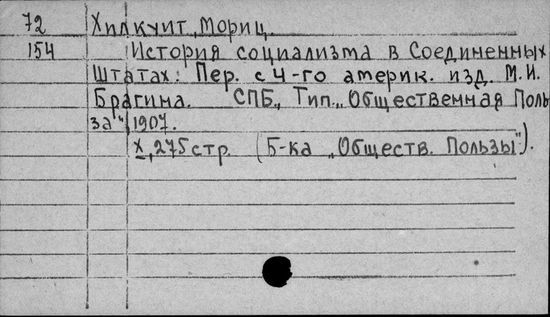 72 Хилкуит, Мориц
154 История социализма в Соединенных
Штатах: Пер. с 4-го америк. изд. М.И.
Брагина. СПБ., Тип. „Общественная Поль
за", 1907.
X, 275 стр. (Б-ка „Обществ. Пользы").